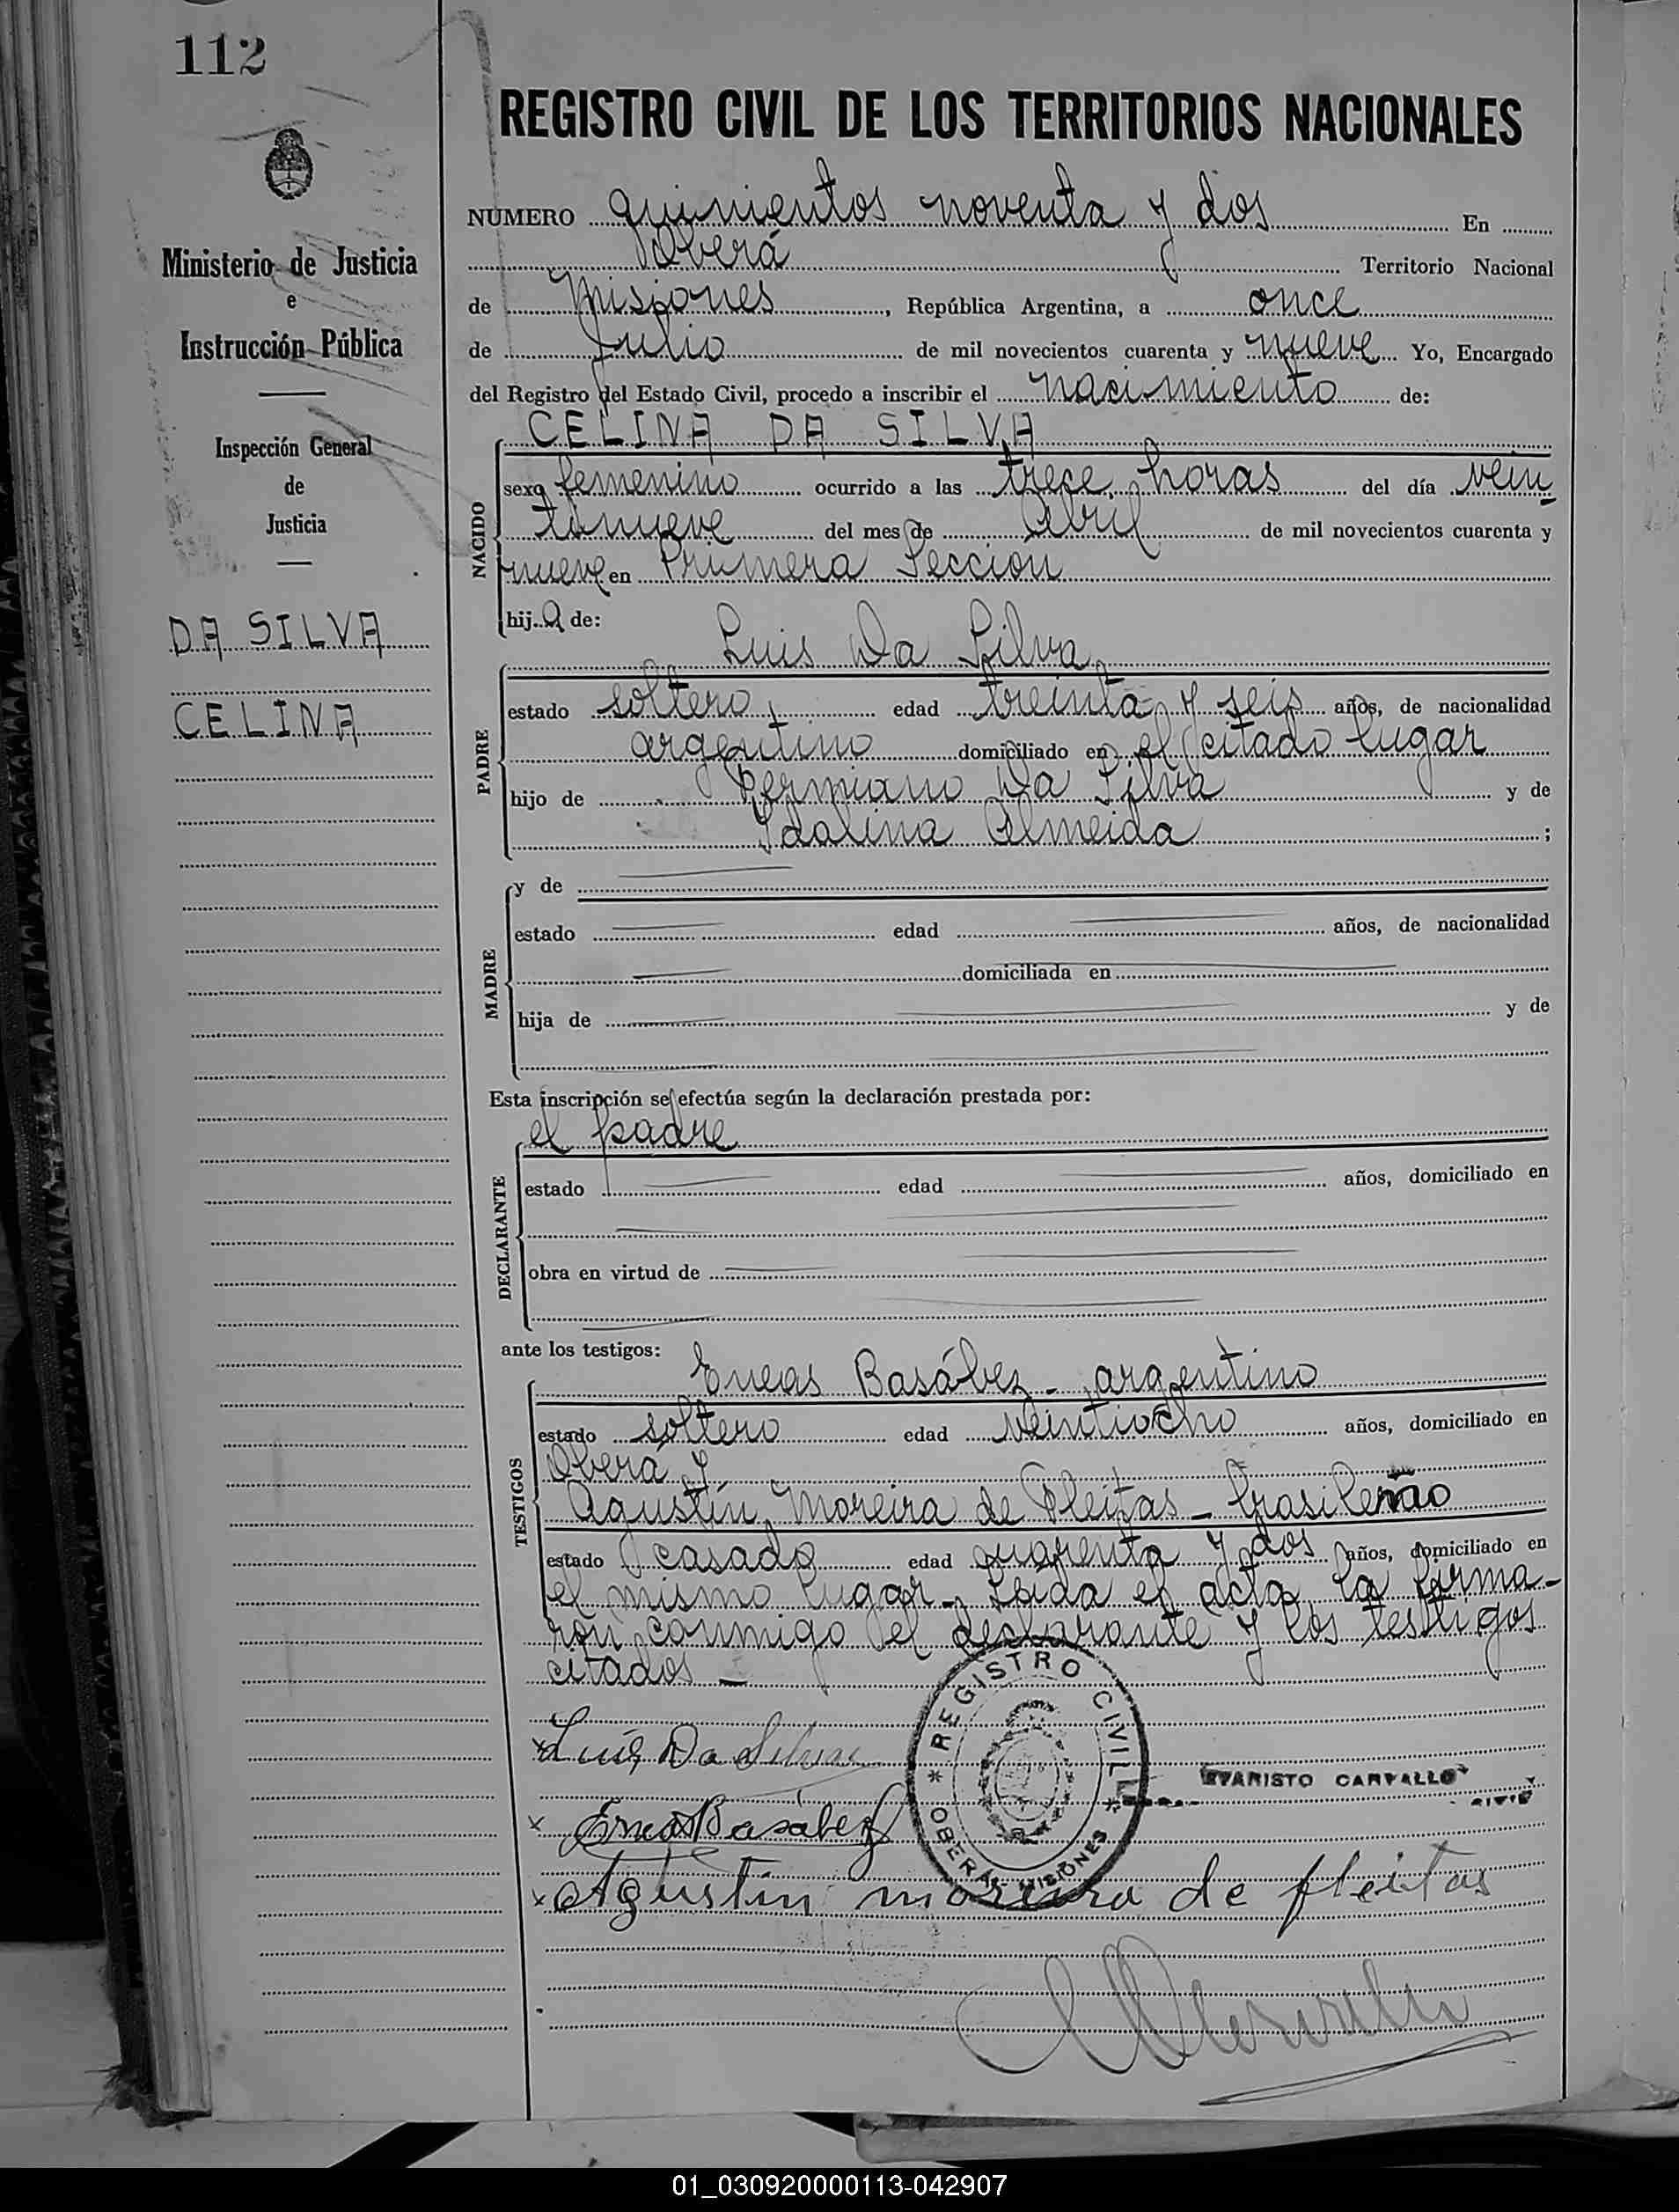 112
REGISTRO CIVIL DE LOS TERRITORIOS NACIONALES
NÚMERO quinientos noventa y dos En
Oberá Territorio Nacional
de Misiones, República Argentina, a once
de Julio de mil novecientos cuarenta y nueve Yo, Encargado
del Registro del Estado Civil, procedo a inscribir el nacimiento de:
CELINA DA SILVA
NACIDO
sexo femenino ocurrido a las trece horas del día vein
tinueve del mes de Abril de mil novecientos cuarenta y
nueve en Primera Seccion
hija de:
Luis Da Silva
PADRE
estado soltero edad treinta y seis años, de nacionalidad
argentino domiciliado en el citado lugar
hijo de Da Silva y de
Idalina Almeida;
MADRE
y de
estado edad años, de nacionalidad
domiciliada en
hija de y de
Esta inscripción se efectúa según la declaración prestada por:
el padre
DECLARANTE
estado edad años, domiciliado en
obra en virtud de
ante los testigos:
Eneas Basábez - argentino
TESTIGOS
estado soltero edad veintiocho años, domiciliado en
Oberá y
Agustín Moreira de Fleitas -
estado casado edad cuarenta y dos años, domiciliado en
el mismo lugar - Leída el acta la firma-
ron conmigo el declarante y los testigos
citados -
x Luis Da Silva
x Eneas Basábez
x Agustín moreira de fleitas
REGISTRO CIVIL
OBERÁ - MISIONES
EVARISTO CARVALLO
Ministerio de Justicia
e
Instrucción Pública
Inspección General
de
Justicia
DA SILVA
CELINA
01_030920000113-042907